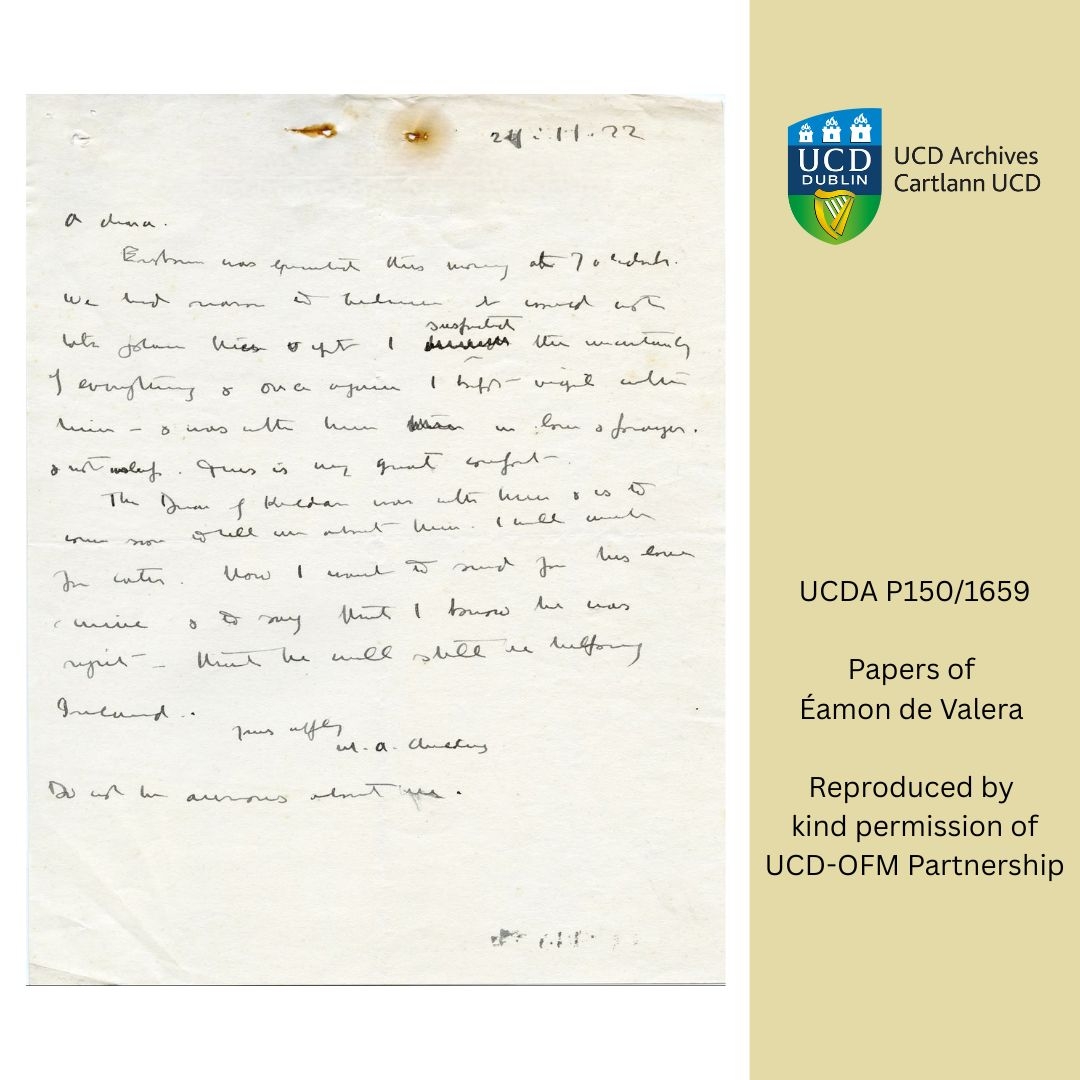 24.11.22
A chara.
Erskine was executed this morning at 7 o'clock.
We had reason to believe it would not
take place then & yet I suspected the uncertainty
of everything & once again I kept vigil with
him – & was with him in love & prayer.
& not asleep. This is my great comfort.
The Dean of Kildare was with him & is to
come now to tell me about him. I will write
you later. Now I want to send you his love
& mine & to say that I know he was
right – that he will still be helping
Ireland.
yours affly
M. A. Childers
Do not be anxious about me.
UCD
DUBLIN
UCD Archives
Cartlann UCD
UCDA P150/1659
Papers of
Éamon de Valera
Reproduced by
kind permission of
UCD-OFM Partnership